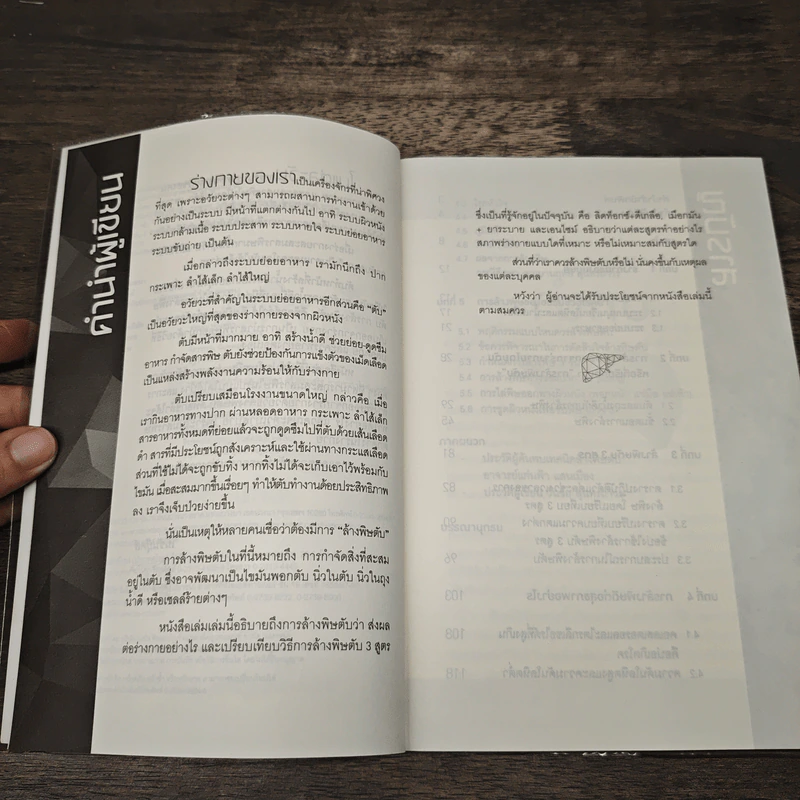 คำนำผู้เขียน
ร่างกายของเราเป็นเครื่องจักรที่น่าพิศวง
ที่สุด เพราะอวัยวะต่างๆ สามารถผสานการทำงานเข้าด้วย
กันอย่างเป็นระบบ มีหน้าที่แตกต่างกันไป อาทิ ระบบผิวหนัง
ระบบกล้ามเนื้อ ระบบประสาท ระบบหายใจ ระบบย่อยอาหาร
ระบบขับถ่าย เป็นต้น
เมื่อกล่าวถึงระบบย่อยอาหาร เรามักนึกถึง ปาก
กระเพาะ ลำไส้เล็ก ลำไส้ใหญ่
อวัยวะที่สำคัญในระบบย่อยอาหารอีกส่วนคือ "ตับ"
เป็นอวัยวะใหญ่ที่สุดของร่างกายรองจากผิวหนัง
ตับมีหน้าที่มากมาย อาทิ สร้างน้ำดี ช่วยย่อย-ดูดซึม
อาหาร กำจัดสารพิษ ตับยังช่วยป้องกันการแข็งตัวของเม็ดเลือด
เป็นแหล่งสร้างพลังงานความร้อนให้กับร่างกาย
ตับเปรียบเสมือนโรงงานขนาดใหญ่ กล่าวคือ เมื่อ
เรากินอาหารทางปาก ผ่านหลอดอาหาร กระเพาะ ลำไส้เล็ก
สารอาหารทั้งหมดที่ย่อยแล้วจะถูกดูดซึมไปที่ตับด้วยเส้นเลือด
ดำ สารที่มีประโยชน์ถูกสังเคราะห์และใช้ผ่านทางกระแสเลือด
ส่วนที่ใช้ไม่ได้จะถูกขับทิ้ง หากทิ้งไม่ได้จะเก็บเอาไว้พร้อมกับ
ไขมัน เมื่อสะสมมากขึ้นเรื่อยๆ ทำให้ตับทำงานด้อยประสิทธิภาพ
ลง เราจึงเจ็บป่วยง่ายขึ้น
นั่นเป็นเหตุให้หลายคนเชื่อว่าต้องมีการ "ล้างพิษตับ"
การล้างพิษตับในที่นี้หมายถึง การกำจัดสิ่งที่สะสม
อยู่ในตับ ซึ่งอาจพัฒนาเป็นไขมันพอกตับ นิ่วในตับ นิ่วในถุง
น้ำดี หรือเซลล์ร้ายต่างๆ
หนังสือเล่มเล่มนี้อธิบายถึงการล้างพิษตับว่า ส่งผล
ต่อร่างกายอย่างไร และเปรียบเทียบวิธีการล้างพิษตับ 3 สูตร
ซึ่งเป็นที่รู้จักอยู่ในปัจจุบัน คือ ลิดท็อกซ์+ดีเกลือ, เมือกมัน
+ ยาระบาย และเอนไซม์ อธิบายว่าแต่ละสูตรทำอย่างไร
สภาพร่างกายแบบใดที่เหมาะ หรือไม่เหมาะสมกับสูตรใด
ส่วนที่ว่าเราควรล้างพิษตับหรือไม่ นั่นคงขึ้นกับเหตุผล
ของแต่ละบุคคล
หวังว่า ผู้อ่านจะได้รับประโยชน์จากหนังสือเล่มนี้
ตามสมควร